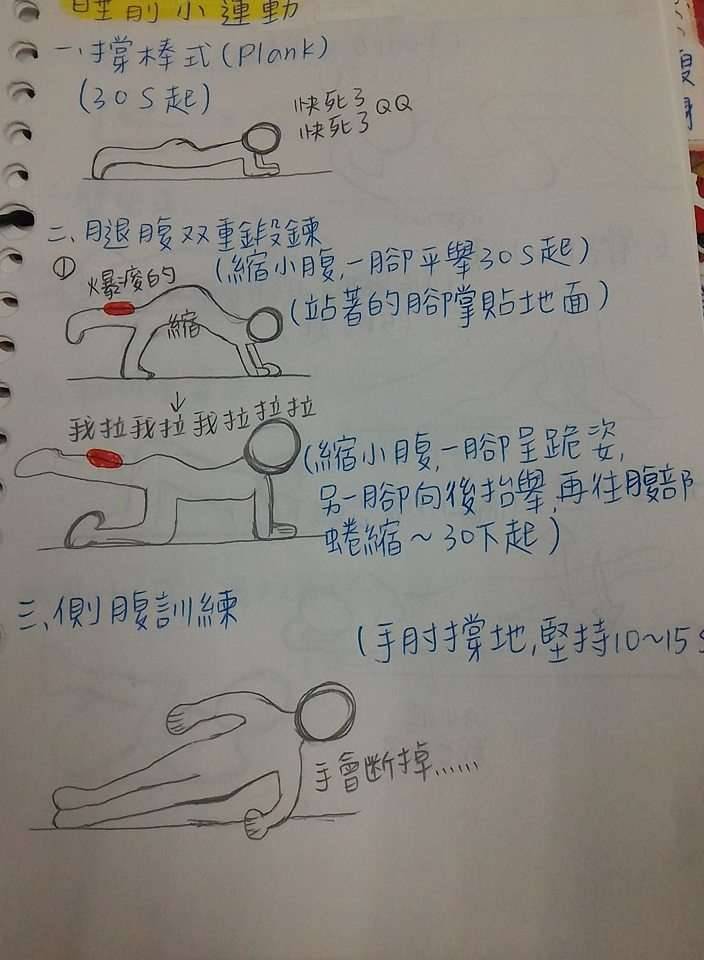 睡前小運動
一、撐棒式(Plank)
(30S起)
快死了QQ
快死了
二、腿腹双重鍛鍊
① 爆瘦的
(縮小腹,一腳平舉30S起)
(站著的腳掌貼地面)
縮
我拉我拉我拉拉拉
(縮小腹,一腳呈跪姿,
另一腳向後抬舉,再往腹部
蜷縮～30下起)
三、側腹訓練
(手肘撐地,堅持10~15S
手會斷掉......